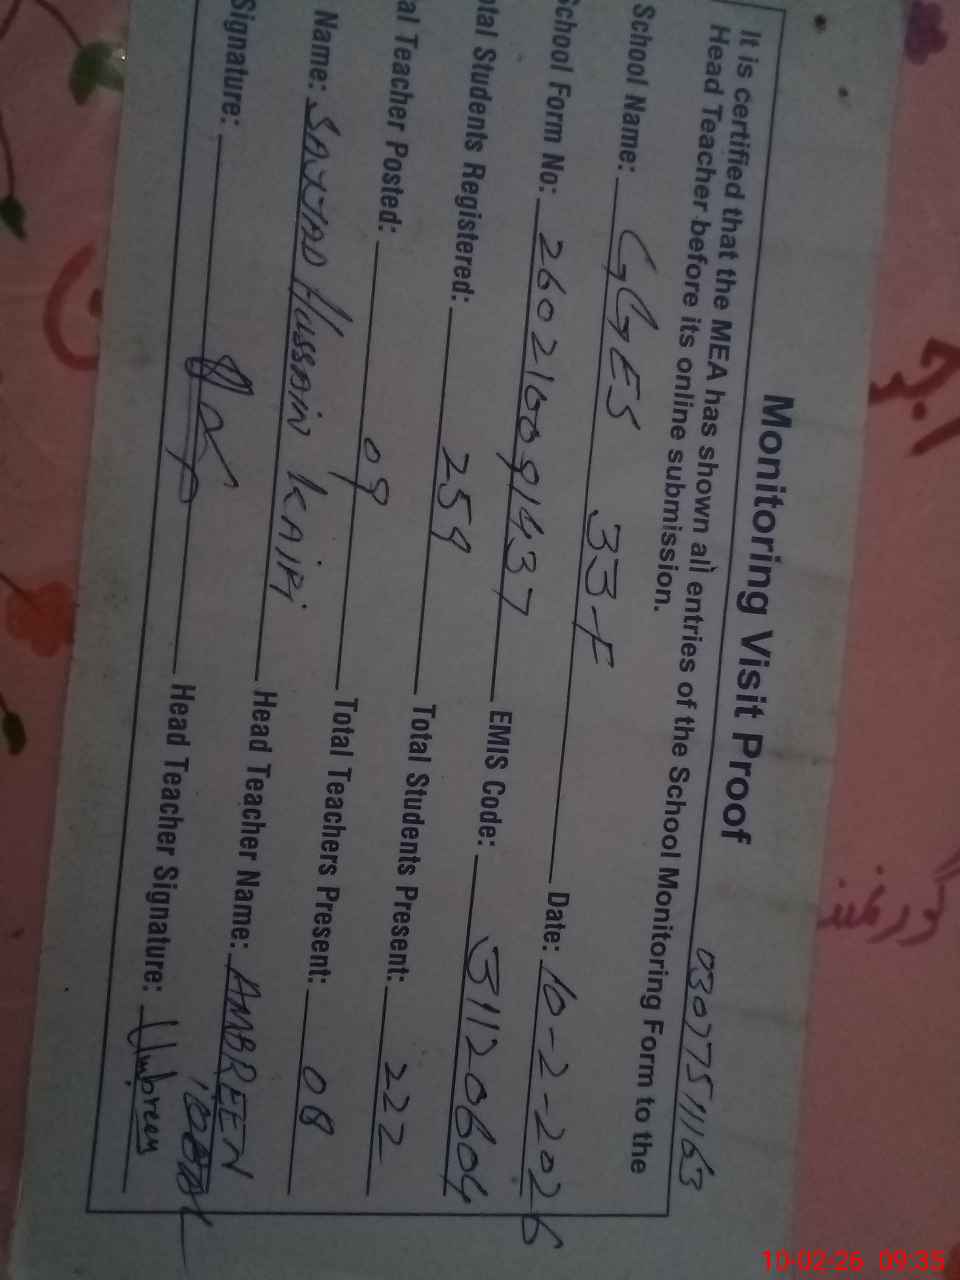 Monitoring Visit Proof
03077511163
It is certified that the MEA has shown all entries of the School Monitoring Form to the
Head Teacher before its online submission.
School Name: GGES 33-F Date: 10-2-2026
School Form No: 260216091437 EMIS Code: 31120604
otal Students Registered: 259 Total Students Present: 222
al Teacher Posted: 09 Total Teachers Present: 08
Name: SAJJAD Hussain Head Teacher Name: AMBREEN
Signature: Head Teacher Signature:
10-02-26 09:35